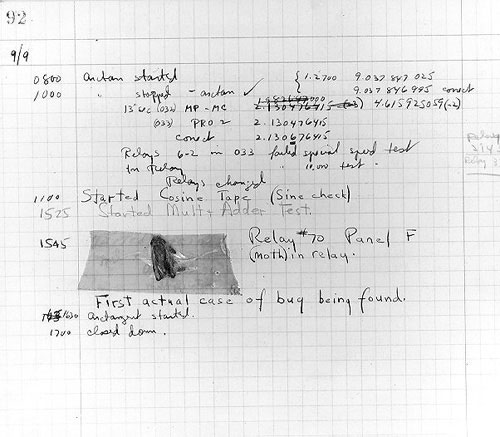 92
9/9
0800 Antan started { 1.2700 9.037 847 025
1000 " stopped - antan ✓ 9.037 846 995 correct
13" uc (032) MP - MC 2.130476415 4.615925059(-2)
(033) PRO 2 2.130476415
correct 2.130676415
Relays 6-2 in 033 failed special speed test
in Relay " 10,000 test.
Relays changed
1100 Started Cosine Tape (Sine check)
1525 Started Mult + Adder Test.
1545 Relay #70 Panel F
(moth) in relay.
First actual case of bug being found.
1630 antangent started.
1700 closed down.